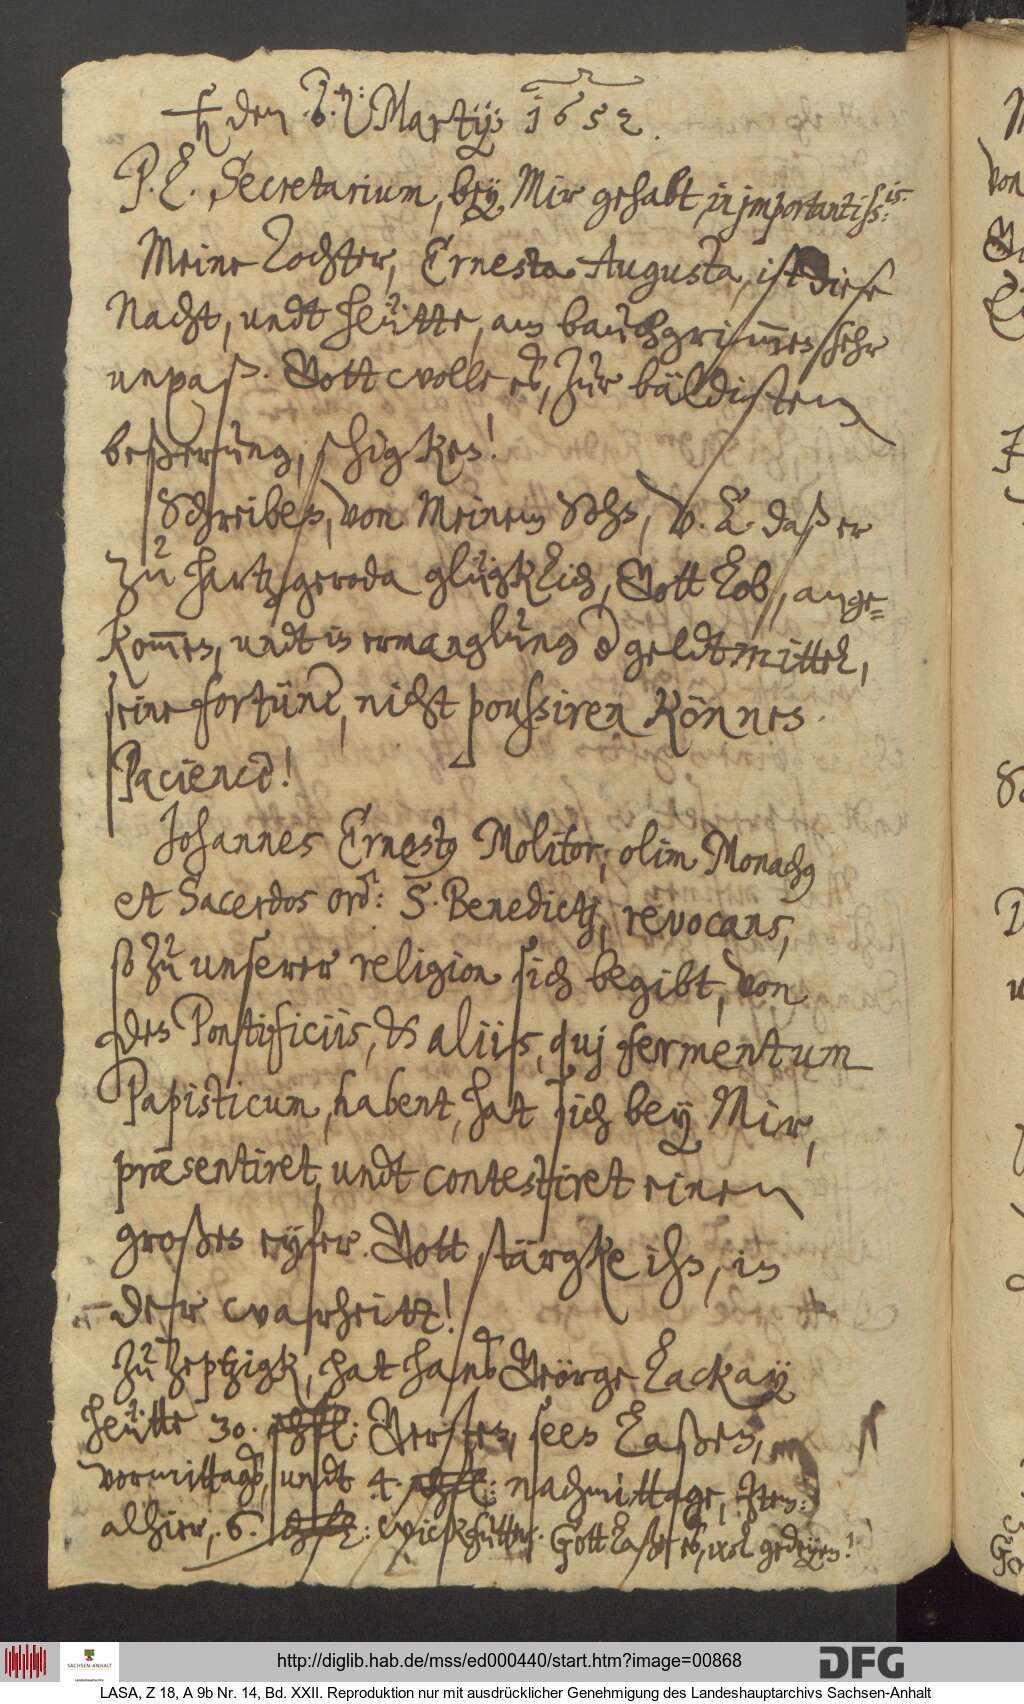 ♄ den :6.ten: Martij: 1652.
P. E. Secretarium, bey Mir gehabt, in importantiss:is
Meine Tochter, Ernesta Augusta, ist diese
Nacht, undt heütte, am bauchgrim̅en sehr
unpaß. Gott wolle es, zur bäldisten
beßerung, schigken!
Schreiben, von Meinem Sohn, V. A. daß er
zu Hartzgeroda glügklich, Gott lob, ange=
kom̅en, undt in ermanglung der geldtmittel,
seine fortüne, nicht poussiren können.
Pacience!
Johannes Ernestus Molitor, olim Monachus
et Sacerdos ord: S. Benedictj, revocans,
so zu unserer religion sich begibt, von
den Pontificiis, et aliis, quj fermentum
Papisticum, habent, hat sich bey Mir,
præsentiret, undt contestiret einen
großen eyfer. Gott stärgke ihn, in
der warheitt!
Zu Zeptzigk, hat hanß Geörge Lackay
heütte 30. schfl: Gersten, seen laßen,
vormittags, undt 4. schfl: nachmittage, Item:
alhier, 6. schfl: Wickfutter. Gott laße es, wol gedeyen!
http://diglib.hab.de/mss/ed000440/start.htm?image=00868
SACHSEN-ANHALT
DFG
LASA, Z 18, A 9b Nr. 14, Bd. XXII. Reproduktion nur mit ausdrücklicher Genehmigung des Landeshauptarchivs Sachsen-Anhalt